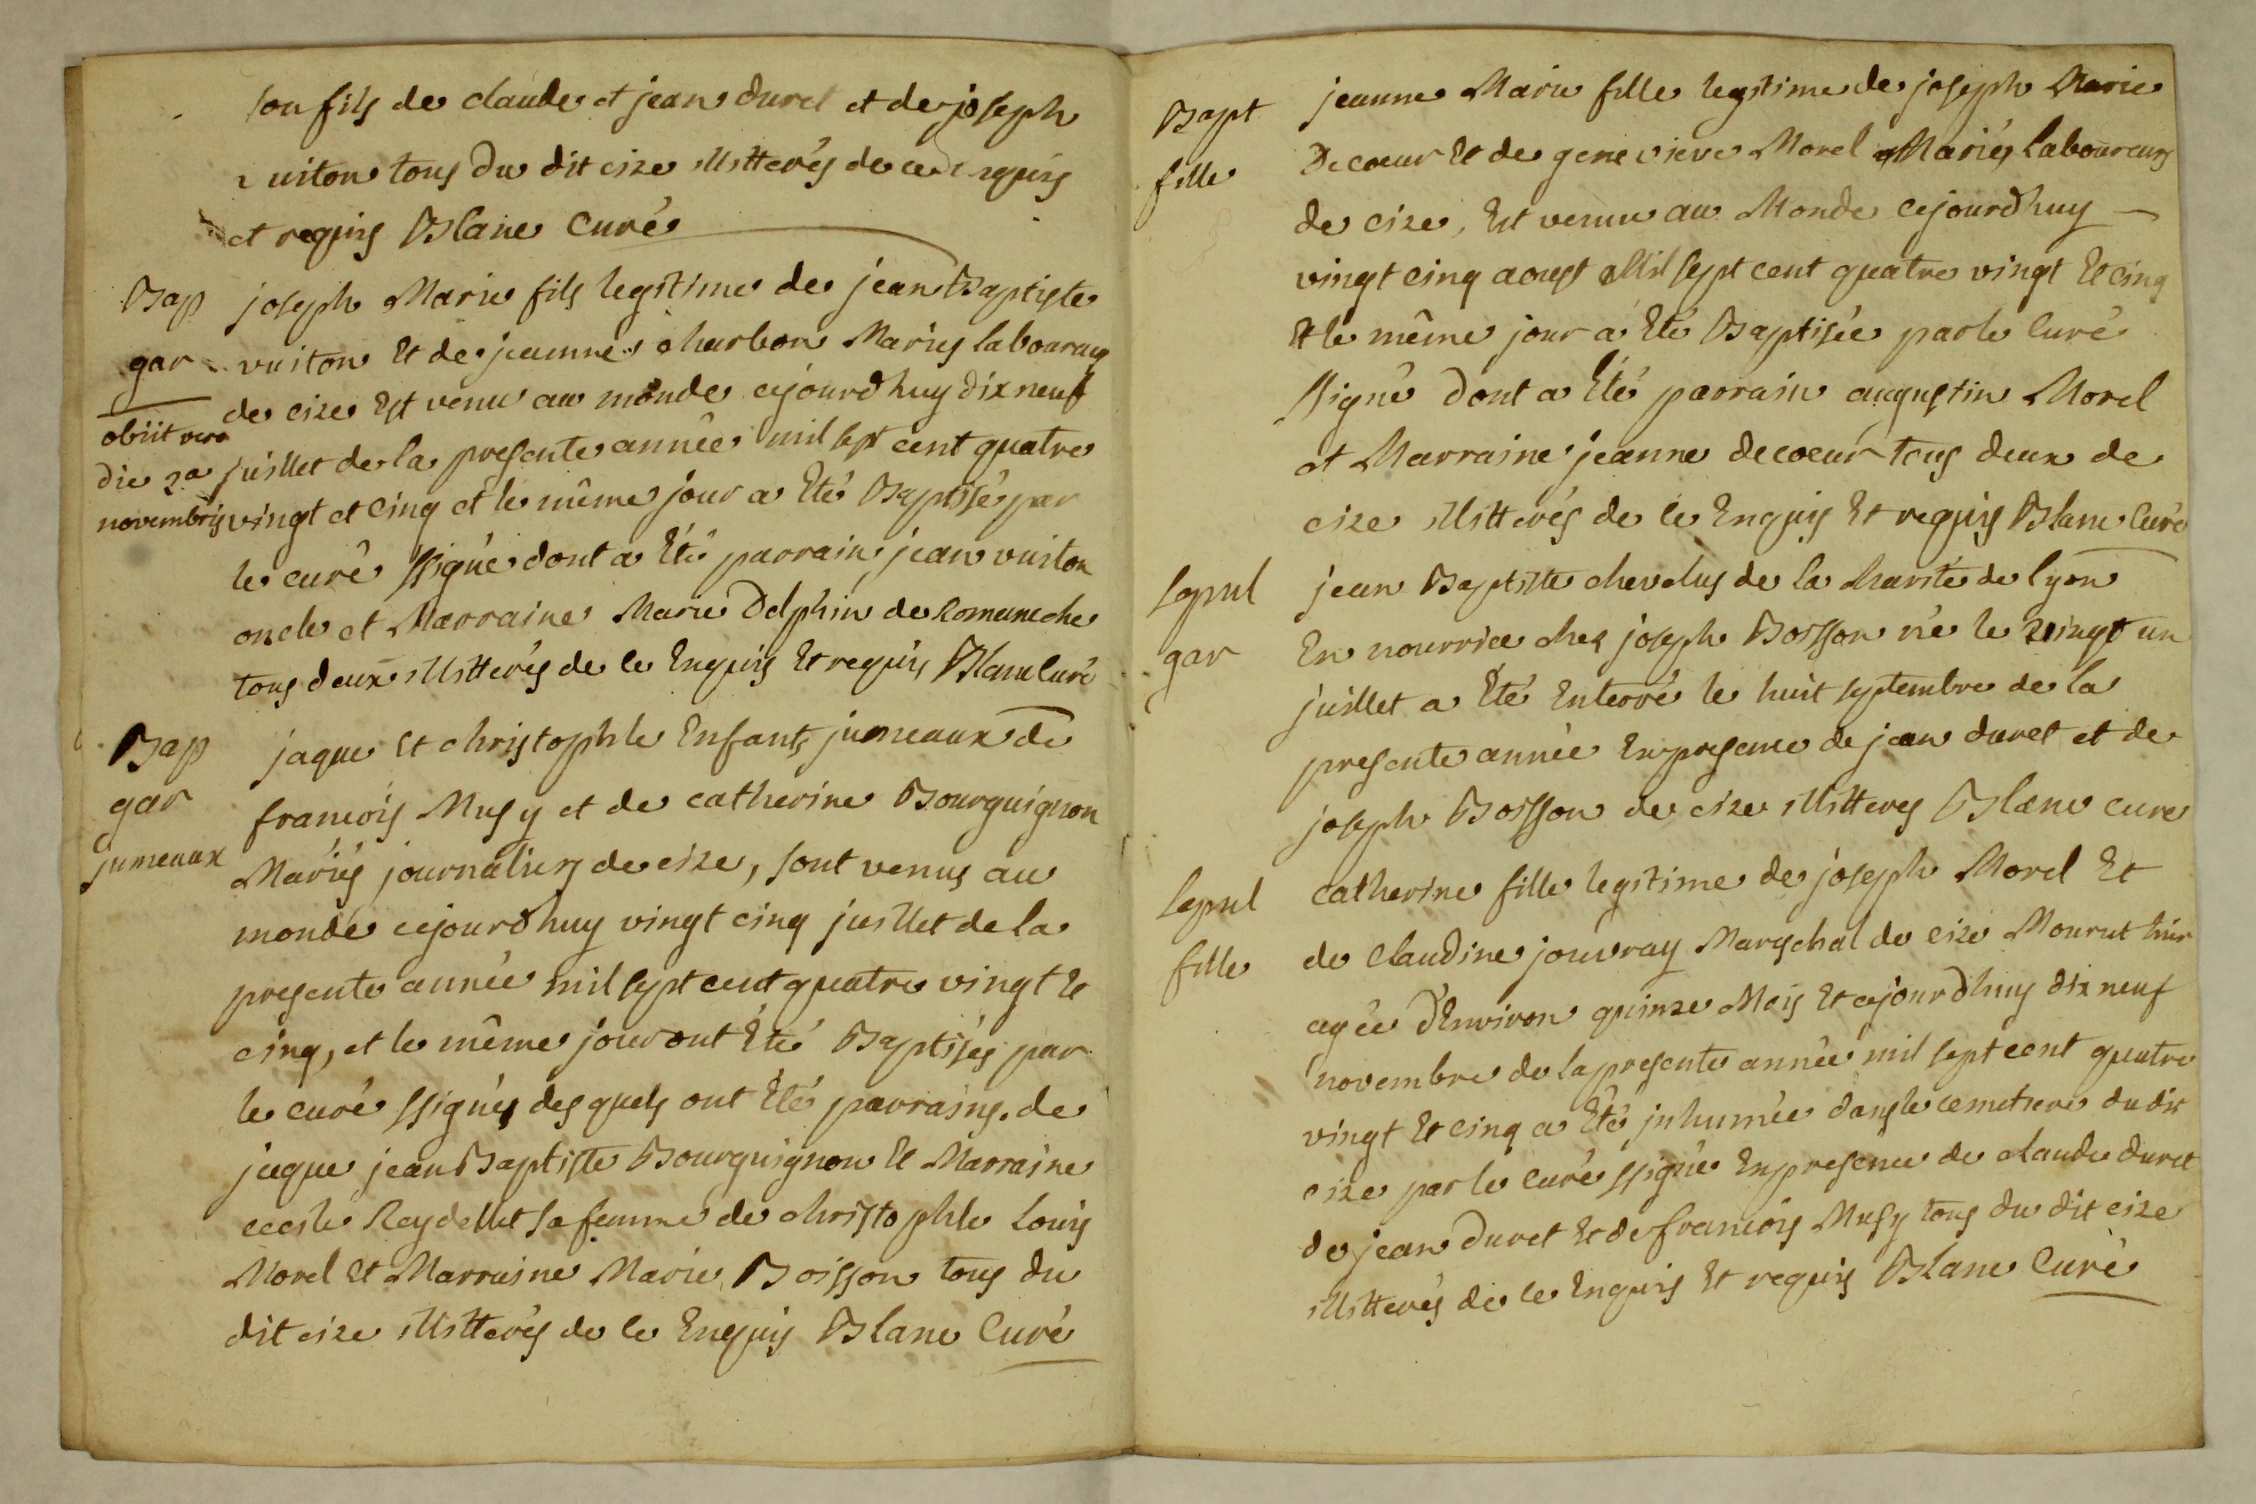 son fils de claude et jean duret et de joseph
vuiton tous du dit cize illitterés de ce enquis
et requis Blanc Curé
Bap
gar
obiit vero
die 2a
novembris
joseph Marie fils legitime de jean Baptiste
vuiton Et de jeanne charbon Mariés laboureurs
de cize Est venu au monde cejourdhuy dix neuf
juillet de la presente année mil sept cent quatre
vingt et cinq et le même jour a Eté Baptisé par
le curé ssigné dont a Eté parrain jean vuiton
oncle et Marraine Marie Delphin de Romaneche
tous deux illitterés de ce Enquis Et requis Blanc Curé
Bap
gar
jumeaux
jaque Et christophle Enfants jumeaux de
francois Musy et de catherine Bourguignon
Mariés journaliers de cize, sont venus au
monde cejourdhuy vingt cinq juillet de la
presente année mil sept cent quatre vingt Et
cinq, et le même jour ont Eté Baptisés par
le curé ssigné, des quels ont Eté parrains. de
jaque jean Baptiste Bourguignon Et Marraine
cecile Reydellet sa femme de christophle Louis
Morel Et Marraine Marie Boisson tous du
dit cize illitterés de ce Enquis Blanc Curé
Bapt
fille
jeanne Marie fille legitime de joseph Marie
Decoeur Et de genevieve Morel Mariés Laboureurs
de cize, Est venue au Monde cejourdhuy
vingt cinq aoust Mil sept cent quatre vingt Et cinq
Et le même jour a Eté Baptisée par le Curé
ssigné dont a Eté parrain augustin Morel
et Marraine jeanne decoeur tous deux de
cize illitterés de ce Enquis Et requis Blanc Curé
Sepul
gar
jean Baptiste chevelus de la charité de lyon
En nourrice chez joseph Boisson né le vingt un
juillet a Eté Enterré le huit septembre de la
presente année En presence de jean duret et de
joseph Boisson de cize illitteres Blanc cure
Sepul
fille
catherine fille legitime de joseph Morel Et
de Claudine jouvray Mareschal de cize Mourut hier
agée d'Environ quinze Mois Et cejourdhuy dix neuf
novembre de la presente année mil sept cent quatre
vingt Et cinq a Eté inhumée dans le cemetiere du dit
cize par le Curé ssigné En presence de claude duret
de jean duret Et de francois Musy tous du dit cize
illitterés de ce Enquis Et requis Blanc Curé